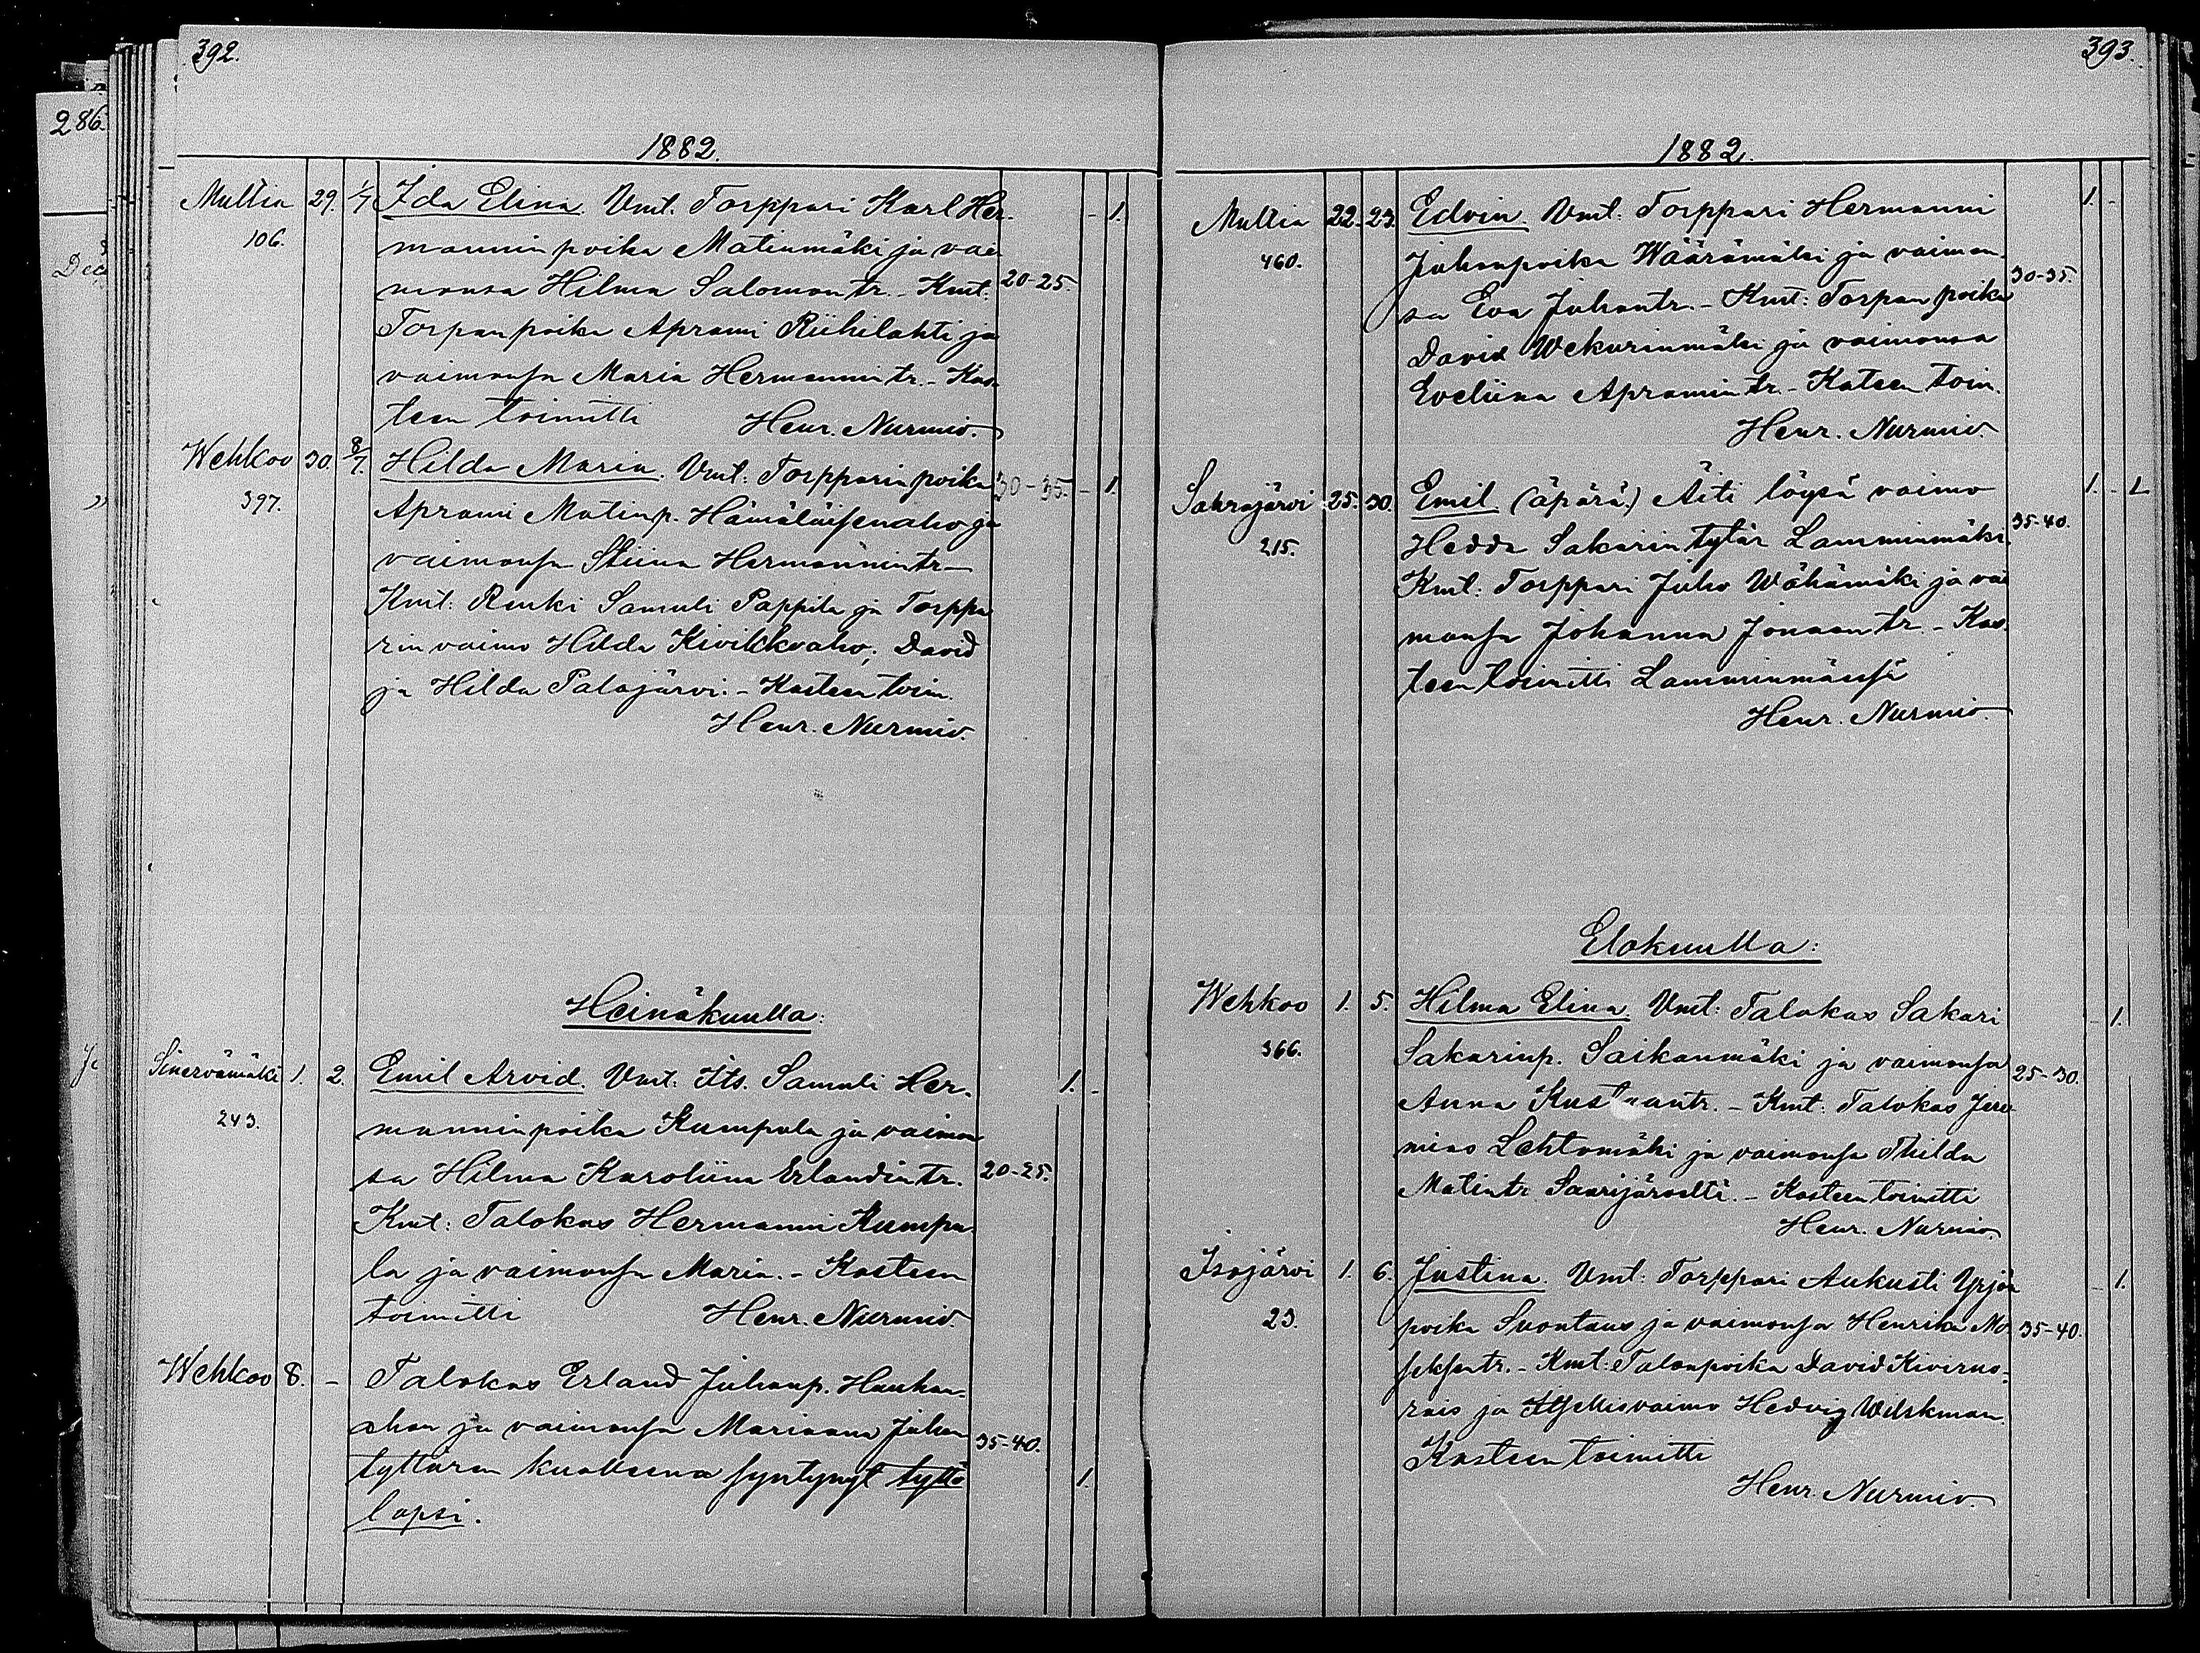 392.
286.
1882.
Multia 29. 1/7 Ida Elina. Vmt. Torppari Karl Her-
106.
mannin poika Matinmäki ja vai
monsa Hilma Salomontr. - Kmt: 20-25. - 1.
Torpanpoika Aprami Riihilahti ja
vaimonsa Maria Hermannintr. - Kas
teen toimitti Henr. Nurmio.
Wehkoo 30. 8/7. Hilda Maria. Vmt. Torpparin poika 30-35. - 1.
397.
Aprami Matinp. Hämäläisenaho ja
vaimonsa Stiina Hermannintr -
Kmt: Renki Samuli Pappila ja Torppa
rin vaimo Hilda Kivikkoaho; David
ja Hilda Palojärvi. - Kasteen toim.
Henr. Nurmio.
Heinäkuulla:
Sinervämäki 1. 2. Emil Arvid. Vmt. Its. Samuli Her- 1. -
243.
mannin poika Kumpula ja vaimon
sa Hilma Karoliina Erlandintr. 20-25.
Kmt: Talokas Hermanni Kumpu-
la ja vaimonsa Maria. - Kasteen
toimitti Henr. Nurmio.
Wehkoo 8. - Talokas Erland Juhanp. Hauhan-
ahon ja vaimonsa Mariaana Juhan 35-40.
tyttären kuolleena syntynyt tyttö 1.
lapsi.
393.
1882.
Multia 22. 23. Edvin. Vmt: Torppari Hermanni 1. -
460.
Juhanpoika Wäärämäki ja vaimon- 30-35.
sa Eva Juhantr. - Kmt: Torpan poika
David Wekurinmäki ja vaimonsa
Eveliina Apramintr. - Kateen toim.
Henr. Nurmio.
Sahrajärvi 25. 30. Emil (äpärä.) Äiti löysä vaimo 1. - 1.
215.
Hedda Sakarin tytär Lamminmäki. 35-40.
Kmt: Torppari Juho Wähämäki ja vai
monsa Johanna Jonaantr. - Kas-
teen toimitti Lamminmäessä
Henr. Nurmio.
Elokuulla:
Wehkoo 1. 5. Hilma Elina. Vmt: Talokas Sakari - 1.
366.
Sakarinp. Saikanmäki ja vaimonsa 25-30.
Anna Kustaantr. - Kmt: Talokas Jere-
mias Lehtomäki ja vaimonsa Thilda
Matintr Saarijärveltä. - Kasteen toimitti
Henr. Nurmio.
Isojärvi 1. 6. Justina. Vmt: Torppari Aukusti Yrjön - 1.
23.
poika Suontaus ja vaimonsa Henrika Mo 35-40.
seksentr. - Kmt: Talonpoika David Kivirus-
rais ja Itsellisvaimo Hedvig Wilskman.
Kasteen toimitti
Henr. Nurmio.